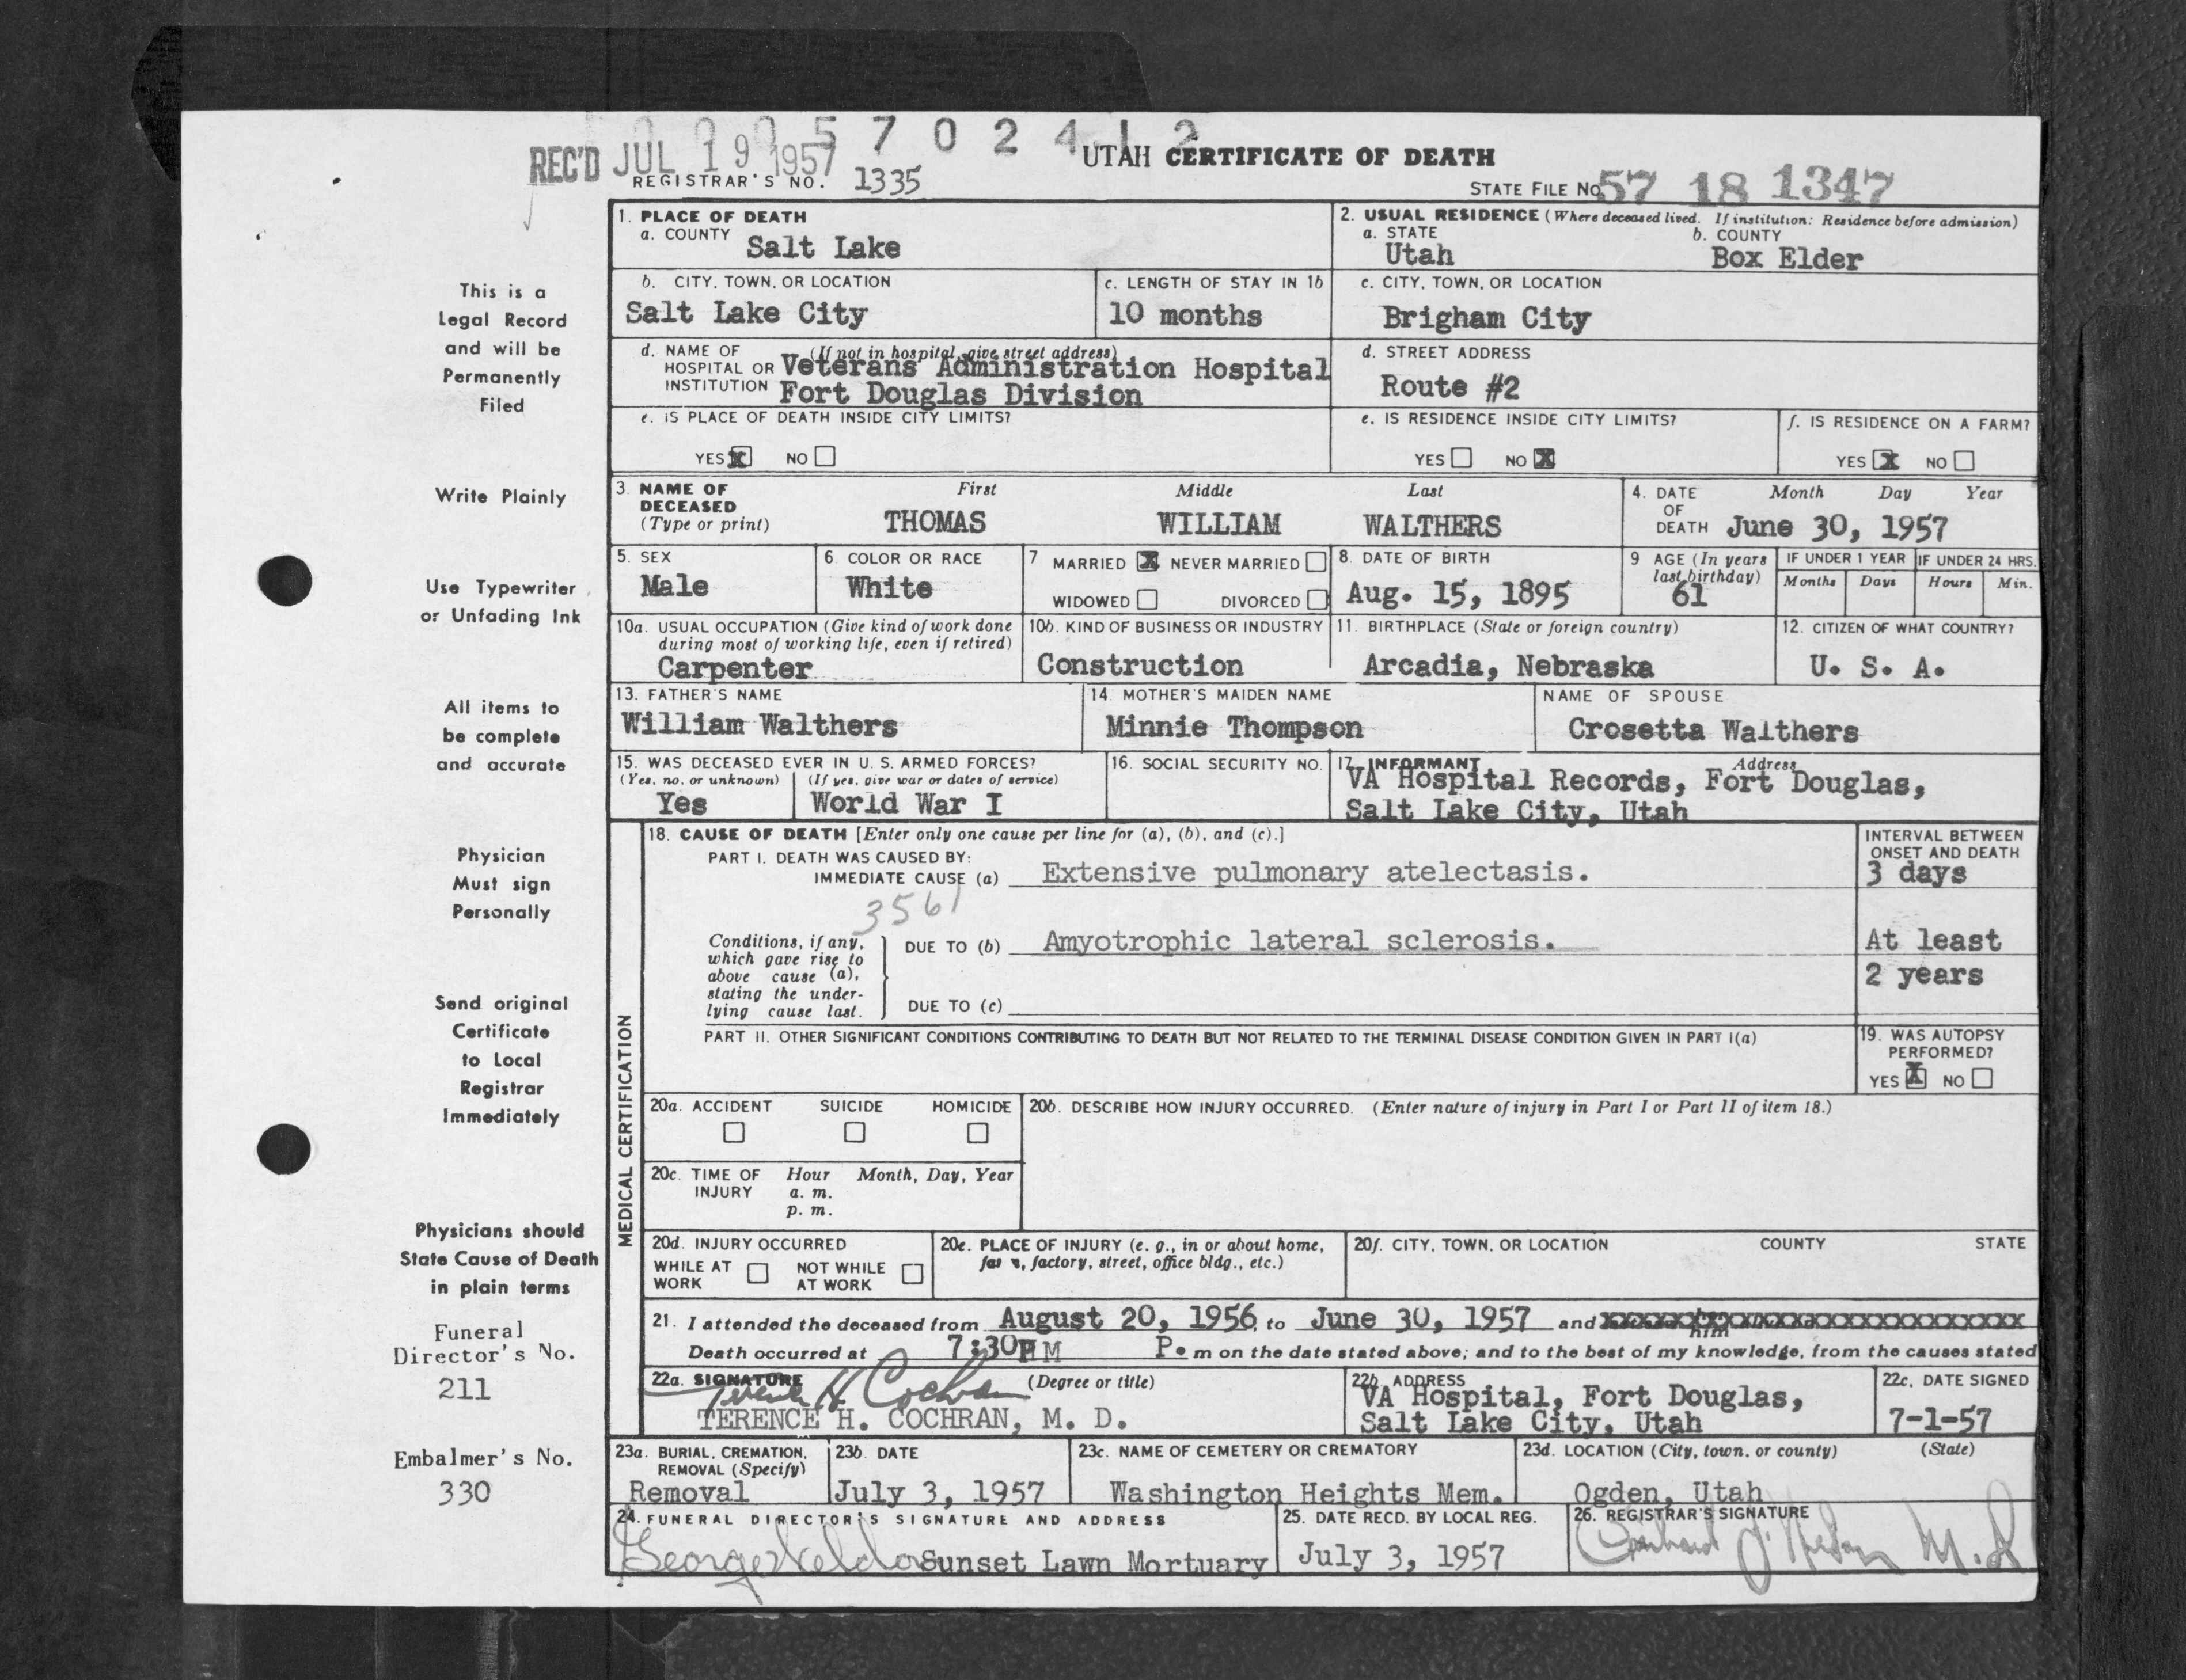 0 0 0 5 7 0 2 4 1 2
REC'D JUL 19 1957
UTAH CERTIFICATE OF DEATH
REGISTRAR'S NO. 1335
STATE FILE NO. 57 18 1347
This is a
Legal Record
and will be
Permanently
Filed
Write Plainly
Use Typewriter
or Unfading Ink
All items to
be complete
and accurate
Physician
Must sign
Personally
Send original
Certificate
to Local
Registrar
Immediately
Physicians should
State Cause of Death
in plain terms
Funeral
Director's No.
211
Embalmer's No.
330
1. PLACE OF DEATH
a. COUNTY Salt Lake
2. USUAL RESIDENCE (Where deceased lived. If institution: Residence before admission)
a. STATE Utah
b. COUNTY Box Elder
b. CITY, TOWN, OR LOCATION
Salt Lake City
c. LENGTH OF STAY IN 1b
10 months
c. CITY, TOWN, OR LOCATION
Brigham City
d. NAME OF (If not in hospital, give street address)
HOSPITAL OR Veterans Administration Hospital
INSTITUTION Fort Douglas Division
d. STREET ADDRESS
Route #2
e. IS PLACE OF DEATH INSIDE CITY LIMITS?
YES X NO
e. IS RESIDENCE INSIDE CITY LIMITS?
YES NO X
f. IS RESIDENCE ON A FARM?
YES X NO
3. NAME OF DECEASED (Type or print)
First Middle Last
THOMAS WILLIAM WALTHERS
4. DATE OF DEATH Month Day Year
June 30, 1957
5. SEX
Male
6. COLOR OR RACE
White
7 MARRIED X NEVER MARRIED
WIDOWED DIVORCED
8. DATE OF BIRTH
Aug. 15, 1895
9 AGE (In years
last birthday)
61
IF UNDER 1 YEAR IF UNDER 24 HRS.
Months Days Hours Min.
10a. USUAL OCCUPATION (Give kind of work done
during most of working life, even if retired)
Carpenter
10b. KIND OF BUSINESS OR INDUSTRY
Construction
11. BIRTHPLACE (State or foreign country)
Arcadia, Nebraska
12. CITIZEN OF WHAT COUNTRY?
U. S. A.
13. FATHER'S NAME
William Walthers
14. MOTHER'S MAIDEN NAME
Minnie Thompson
NAME OF SPOUSE
Crosetta Walthers
15. WAS DECEASED EVER IN U. S. ARMED FORCES?
(Yes, no, or unknown) (If yes, give war or dates of service)
Yes World War I
16. SOCIAL SECURITY NO.
17. INFORMANT Address
VA Hospital Records, Fort Douglas,
Salt Lake City, Utah
MEDICAL CERTIFICATION
18. CAUSE OF DEATH [Enter only one cause per line for (a), (b), and (c).]
INTERVAL BETWEEN
ONSET AND DEATH
PART I. DEATH WAS CAUSED BY:
IMMEDIATE CAUSE (a) Extensive pulmonary atelectasis.
3 days
3561
Conditions, if any,
which gave rise to
above cause (a),
stating the under-
lying cause last.
DUE TO (b) Amyotrophic lateral sclerosis.
At least
2 years
DUE TO (c)
PART II. OTHER SIGNIFICANT CONDITIONS CONTRIBUTING TO DEATH BUT NOT RELATED TO THE TERMINAL DISEASE CONDITION GIVEN IN PART I(a)
19. WAS AUTOPSY
PERFORMED?
YES X NO
20a. ACCIDENT SUICIDE HOMICIDE
20b. DESCRIBE HOW INJURY OCCURRED. (Enter nature of injury in Part I or Part II of item 18.)
20c. TIME OF INJURY Hour Month, Day, Year
a. m.
p. m.
20d. INJURY OCCURRED
WHILE AT WORK NOT WHILE AT WORK
20e. PLACE OF INJURY (e. g., in or about home,
farm, factory, street, office bldg., etc.)
20f. CITY, TOWN, OR LOCATION COUNTY STATE
21. I attended the deceased from August 20, 1956, to June 30, 1957 and xxxxxxxxxxxxxxxxxxxxxxxxxxxxx
him
Death occurred at 7:30PM P. m on the date stated above; and to the best of my knowledge, from the causes stated
22a. SIGNATURE (Degree or title)
Terence H Cochran
TERENCE H. COCHRAN, M. D.
22b. ADDRESS
VA Hospital, Fort Douglas,
Salt Lake City, Utah
22c. DATE SIGNED
7-1-57
23a. BURIAL, CREMATION,
REMOVAL (Specify)
Removal
23b. DATE
July 3, 1957
23c. NAME OF CEMETERY OR CREMATORY
Washington Heights Mem.
23d. LOCATION (City, town, or county) (State)
Ogden, Utah
24. FUNERAL DIRECTOR'S SIGNATURE AND ADDRESS
George Sunset Lawn Mortuary
25. DATE RECD. BY LOCAL REG.
July 3, 1957
26. REGISTRAR'S SIGNATURE
M.D.